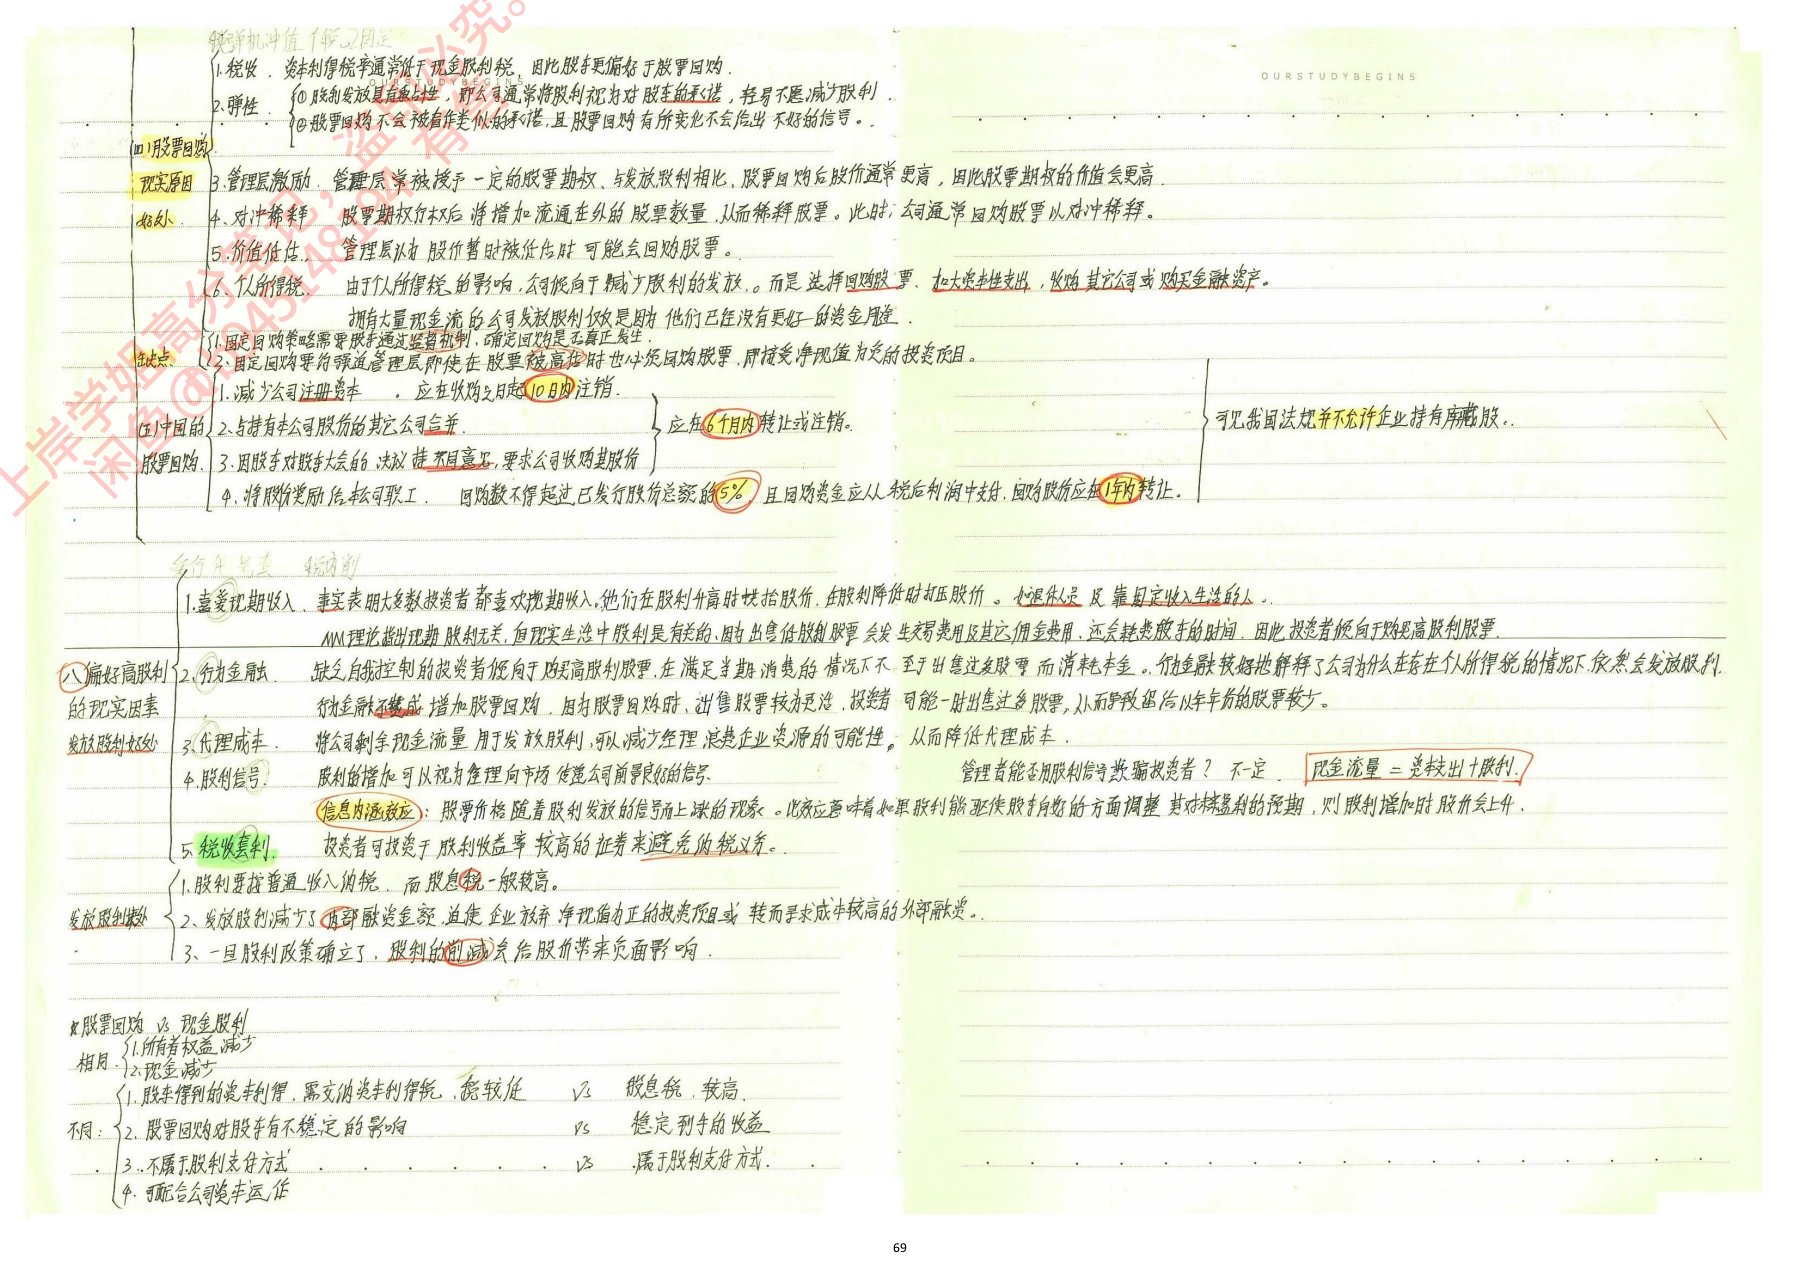 税弹机冲值 1税 2固定
1.税收. 资本利得税率通常低于现金股利税,因此股东更偏好于股票回购.
OURSTUDYBEGINS
OURSTUDYBEGINS
2.弹性 ①股利发放具有粘性,即公司通常将股利视为对股东的承诺,轻易不愿减少股利.
②股票回购不会被看作类似的承诺,且股票回购有所变化不会给出不好的信号。
(四)股票回购
现实原因
好处.
3.管理层激励. 管理层常被授予一定的股票期权、与发放股利相比,股票回购后股价通常更高,因此股票期权的价值会更高.
4.对冲稀释 股票期权行权后将增加流通在外的股票数量,从而稀释股票。此时,公司通常回购股票以对冲稀释。
5.价值低估. 管理层认为股价暂时被低估时可能会回购股票。
6.个人所得税. 由于个人所得税的影响,公司倾向于减少股利的发放。而是选择回购股票、加大资本性支出,收购其它公司或购买金融资产。
拥有大量现金流的公司发放股利仅仅是因为他们已经没有更好的资金用途.
缺点.
1.固定回购策略需要股东通过监督机制,确定回购是否真正发生.
2.固定回购要约强迫管理层即使在股票被高估时也必须回购股票.即接受净现值为负的投资项目。
(五)中国的
股票回购.
1.减少公司注册资本. 应在收购之日起10日内注销.
2.与持有本公司股份的其它公司合并.
应在6个月内转让或注销。
可见我国法规并不允许企业持有库藏股。
3.因股东对股东大会的决议持不同意见,要求公司收购其股份
4.将股份奖励给本公司职工. 回购数不得超过已发行股份总额的5%,且回购资金应从税后利润中支付,回购股份应在1年内转让。
1.喜爱现期收入、事实表明大多数投资者都喜欢现期收入.他们在股利升高时哄抬股价,在股利降低时打压股价。如退休人员及靠固定收入生活的人.
MM理论指出现期股利无关,但现实生活中股利是有关的.因为出售低股利股票会发生交易费用及其它佣金费用.还会耗费股东的时间.因此投资者倾向于购买高股利股票.
八 偏好高股利
的现实因素
发放股利好处
2.行为金融. 缺乏自我控制的投资者倾向于购买高股利股票.在满足当期消费的情况下不至于出售过多股票而消耗本金。行为金融较好地解释了公司为什么在存在个人所得税的情况下依然会发放股利.
行为金融不赞成增加股票回购.因为股票回购时、出售股票较为灵活、投资者可能一时出售过多股票,从而导致留给以后年份的股票较少。
3.代理成本. 将公司剩余现金流量用于发放股利,可以减少经理浪费企业资源的可能性。从而降低代理成本.
4.股利信号. 股利的增加可以视为管理向市场传递公司前景良好的信号. 管理者能否用股利信号欺骗投资者? 不一定. 现金流量=资本支出+股利.
信息内涵效应: 股票价格随着股利发放的信号而上涨的现象。此效应意味着如果股利能驱使股东向好的方面调整其对将来盈利的预期,则股利增加时股价会上升.
5.税收套利. 投资者可投资于股利收益率较高的证券来避免纳税义务。
发放股利坏处
1.股利要按普通收入纳税、而股息税一般较高。
2.发放股利减少了内部融资金额.迫使企业放弃净现值为正的投资项目或转而寻求成本较高的外部融资。
3.一旦股利政策确立了,股利的削减会给股价带来负面影响.
☆股票回购 VS 现金股利
相同. 1.所有者权益减少
2.现金减少
不同:
1.股东得到的资本利得,需交纳资本利得税,税较低 VS 股息税,较高.
2.股票回购对股东有不稳定的影响 VS 稳定到手的收益
3.不属于股利支付方式 VS 属于股利支付方式.
4.可配合公司资本运作
69